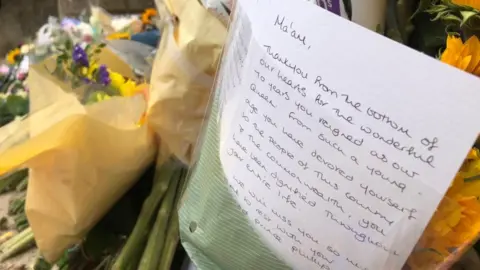 Ma'am,
Thankyou from the bottom of
our hearts for the wonderful
70 years you reigned as our
Queen. From such a young
age you have devoted yourself
to the people of this country
& the commonwealth. You
have been dignified throughout
your entire life.
We will miss you so
to rest with your
Prince Philip